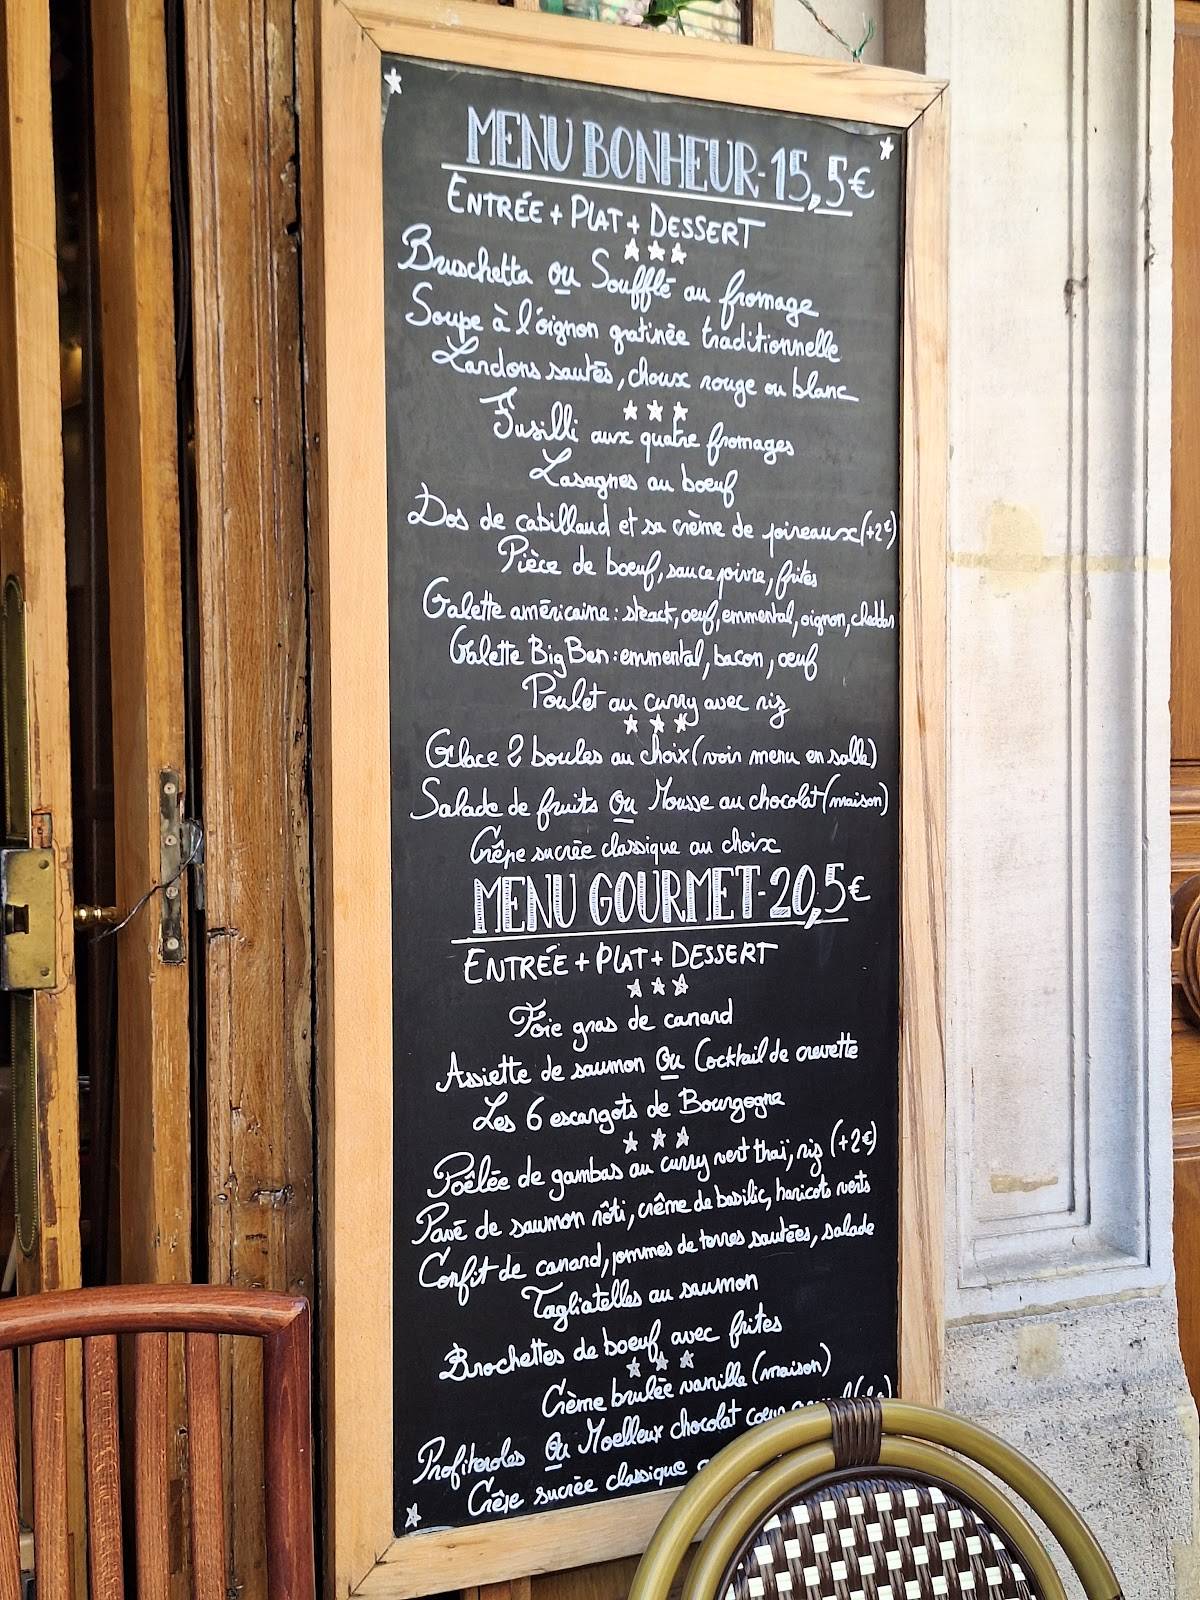 MENU BONHEUR-15,5€
ENTRÉE + PLAT + DESSERT
Bruschetta ou Soufflé au fromage
Soupe à l'oignon gratinée traditionnelle
Lardons sautés, choux rouge ou blanc
Fusilli aux quatre fromages
Lasagnes au boeuf
Dos de cabillaud et sa crème de poireaux (+2€)
Pièce de boeuf, sauce poivre, frites
Galette américaine : steack, oeuf, emmental, oignon, cheddar
Galette Big Ben : emmental, bacon, oeuf
Poulet au curry avec riz
Glace 2 boules au choix (voir menu en salle)
Salade de fruits ou Mousse au chocolat (maison)
Crêpe sucrée classique au choix
MENU GOURMET-20,5€
ENTRÉE + PLAT + DESSERT
Foie gras de canard
Assiette de saumon ou Cocktail de crevette
Les 6 escargots de Bourgogne
Poêlée de gambas au curry vert thaï, riz (+2€)
Pavé de saumon rôti, crême de basilic, haricots verts
Confit de canard, pommes de terres sautées, salade
Tagliatelles au saumon
Brochettes de boeuf avec frites
Crème brulée vanille (maison)
Profiteroles ou Moelleux chocolat coeur
Crêpe sucrée classique